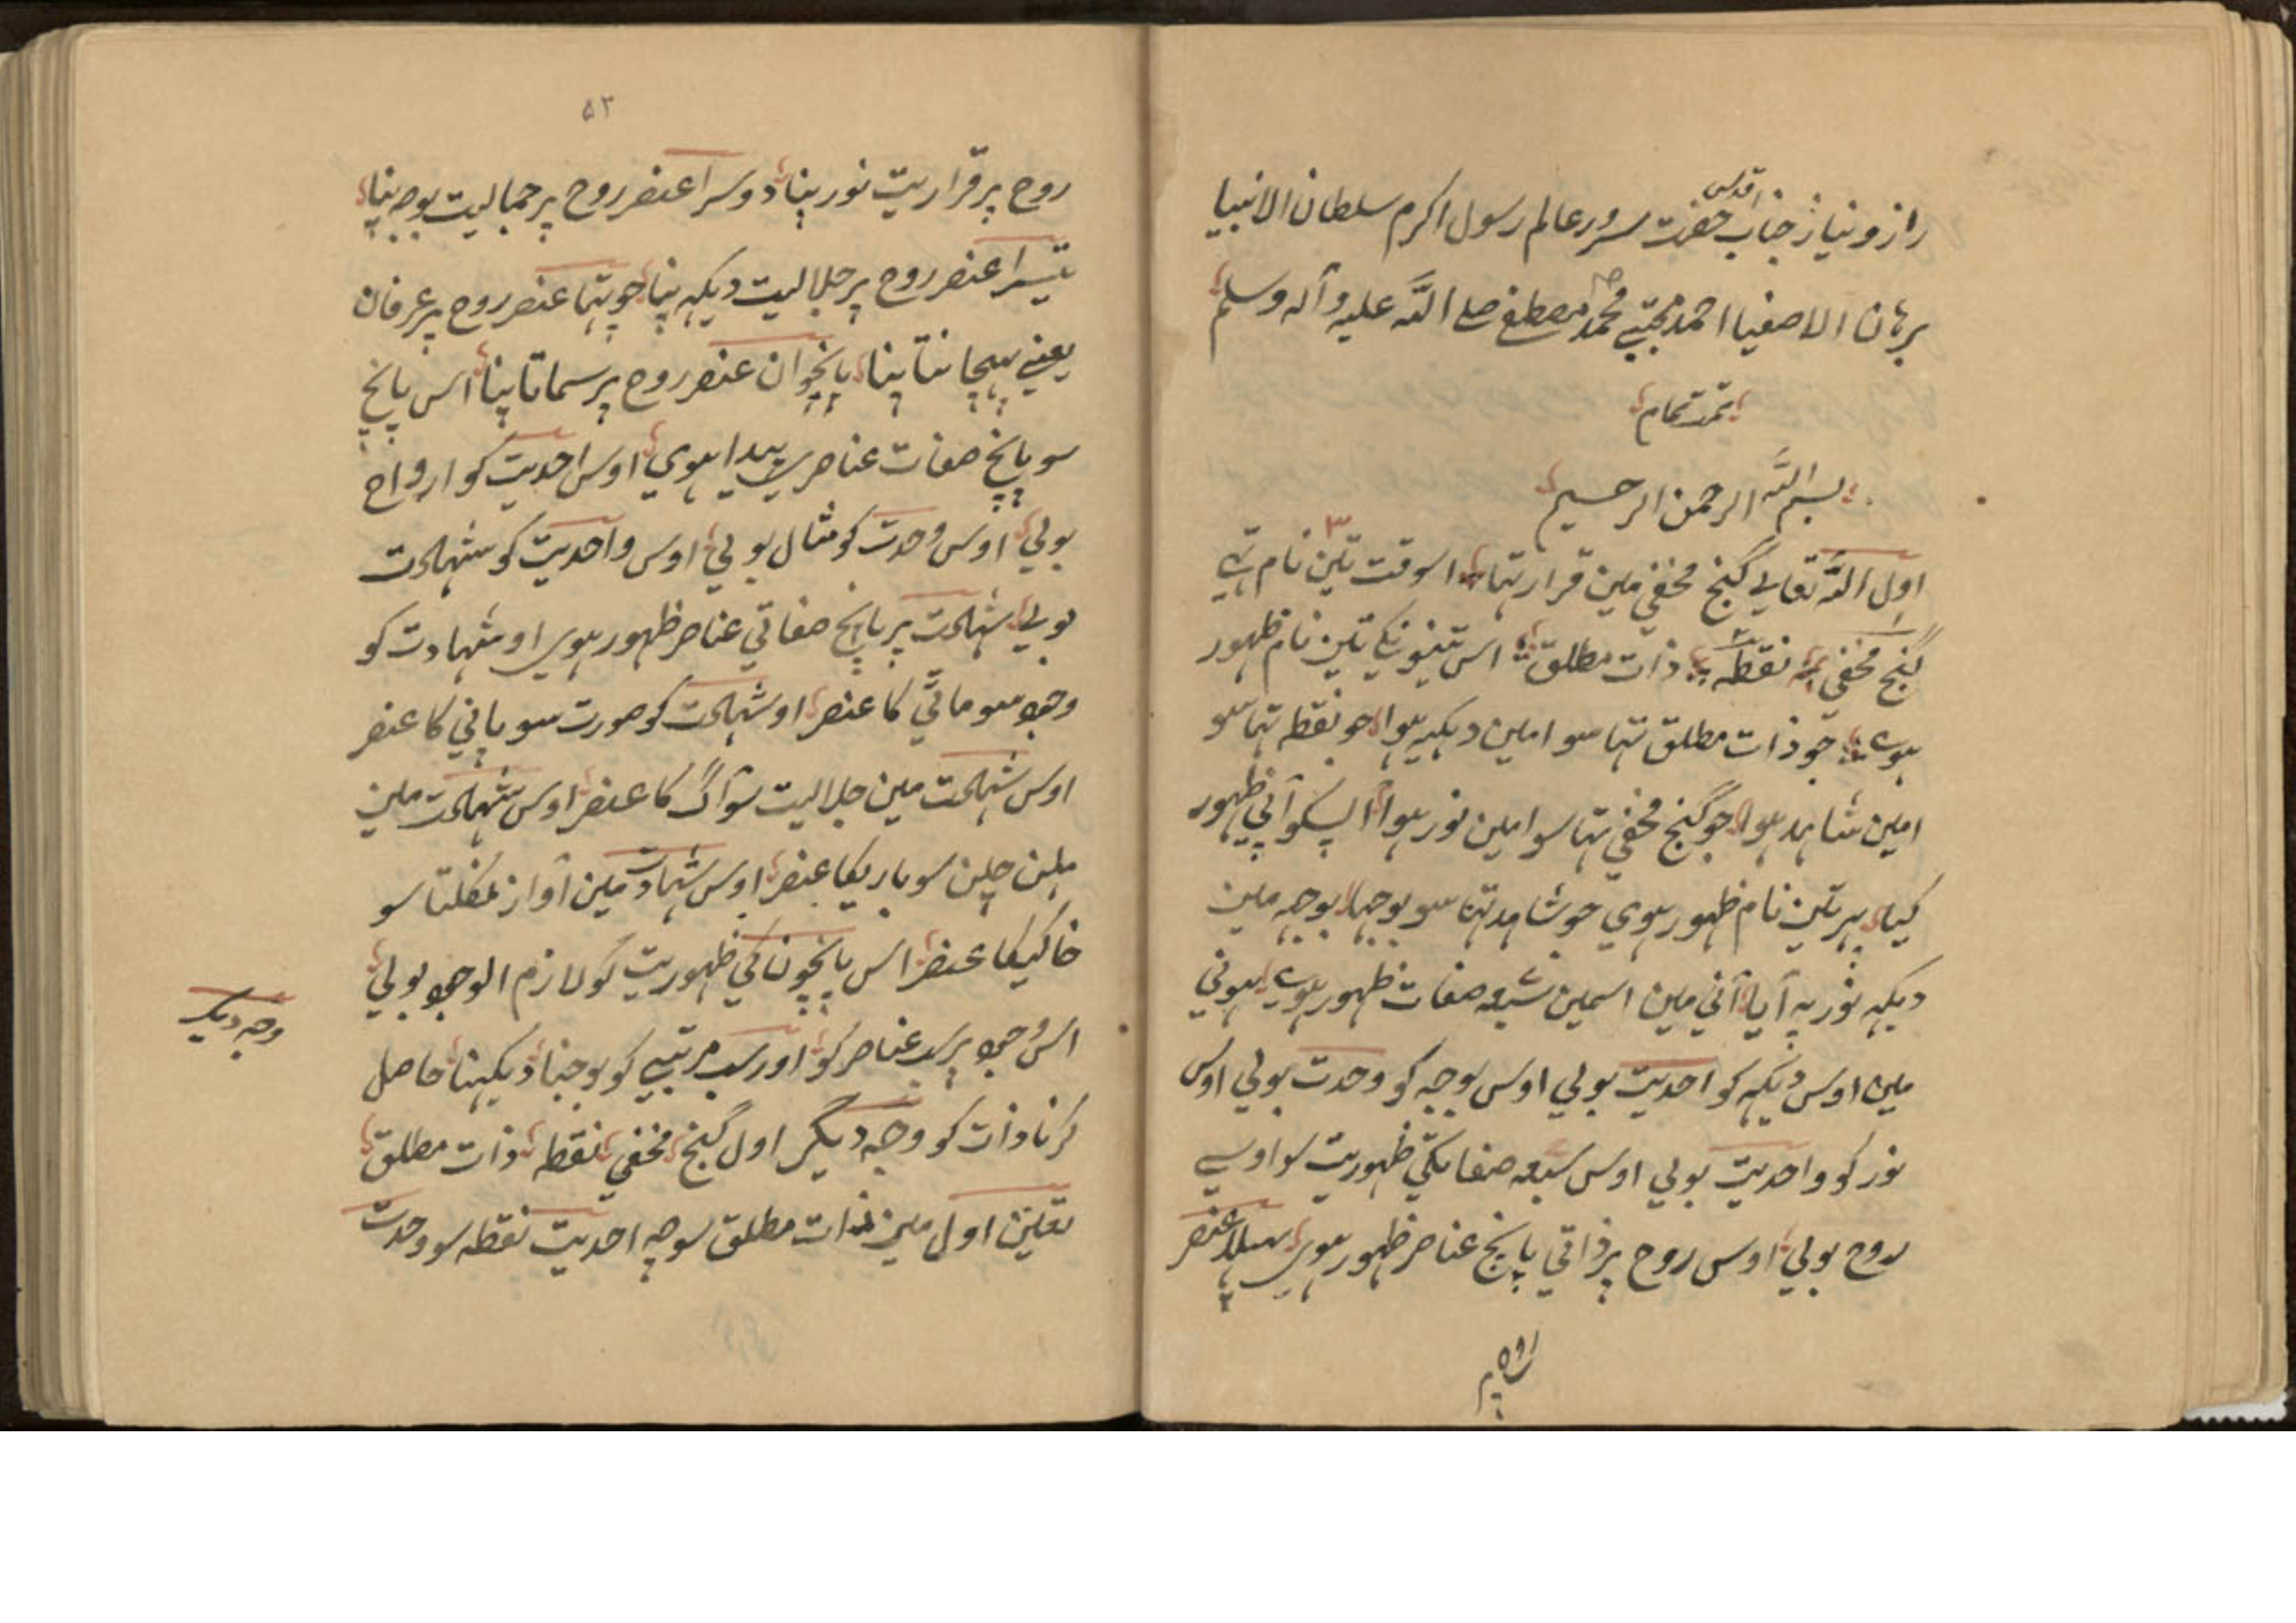 راز و نیاز جناب اقدس حضرت سرور عالم رسول اکرم سلطان الانبیا
برہان الاصفیا احمد مجتبے محمد مصطفے صلے اللّہ علیہ وآلہ وسلم
تمت تمام
بسم اللّہ الرحمن الرحیم
اول اللّہ تعالے گنج مخفي مین قرار تہا اسوقت تین ۳ نام تہے
گنج مخفي نقطہ ذات مطلق اس تینونکے تین نام ظہور
ہوے جو ذات مطلق تہا سو امین دیکہہ ہوا جو نقطہ تہا سو
امین شاہد ہوا جو گنج مخفي تہا سو امین نور ہوا اپسکو آپي ظہور
کیا پہر تین نام ظہور ہوي جو شاہد تہا سو بوجہا بوجہ مین
دیکہہ نور یہ آیا آني مین اسمین سبعہ صفات ظہور ہوے ہوني
مین اوس دیکہہ کو احدیت بولي اوس بوجہ کو وحدت بولي اوس
نور کو واحدیت بولي اوس سبعہ صفاتکي ظہوریت سو اوسے
روح بولي اوس روح پر ذاتي پانچ عناصر ظہور ہوي پہلا عنصر
روح پر
۵۳
روح پر قراریت نور پنا دوسرا عنصر روح پر جمالیت بوجہ پنا
تیسرا عنصر روح پر جلالیت دیکہہ پنا چوتہا عنصر روح پر عرفان
یعنے پہچانتا پنا پانچوان عنصر روح پر سماتا پنا اس پانچ
سو پانچ صفات عناصر پیدا ہوي اوس احدیت کو ارواح
بولي اوس وحدت کو مثال بولي اوس واحدیت کو شہادت
بولي شہادت پر پانچ صفاتي عناصر ظہور ہوي او شہادت کو
وجود سو ماٹي کا عنصر او شہادت کو صورت سو پاني کا عنصر
اوس شہادت مین جلالیت سو آگ کا عنصر اوس شہادت مین
ہلن چلن سو باریکا عنصر اوس شہادت مین آواز نکلتا سو
خالیکا عنصر اس پانچونکي ظہوریت کو لازم الوجود بولي
اس وجود پر سب عناصر کو اور سب مرتبے کو بوجنا دیکہنا حاصل
کرنا ذات کو وجہ دیگر اول گنج مخفي نقطہ ذات مطلق
تعین اول مین ذات مطلق سو چہ احدیت نقطہ سو وحدت
وجہ دیگر